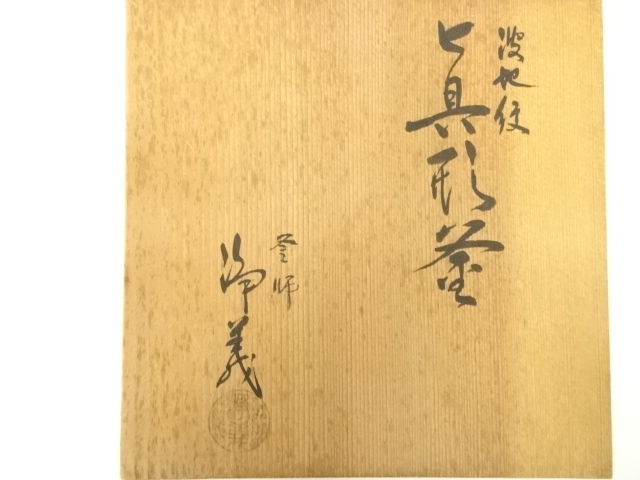 波地紋
真形釜
釜師
浄義